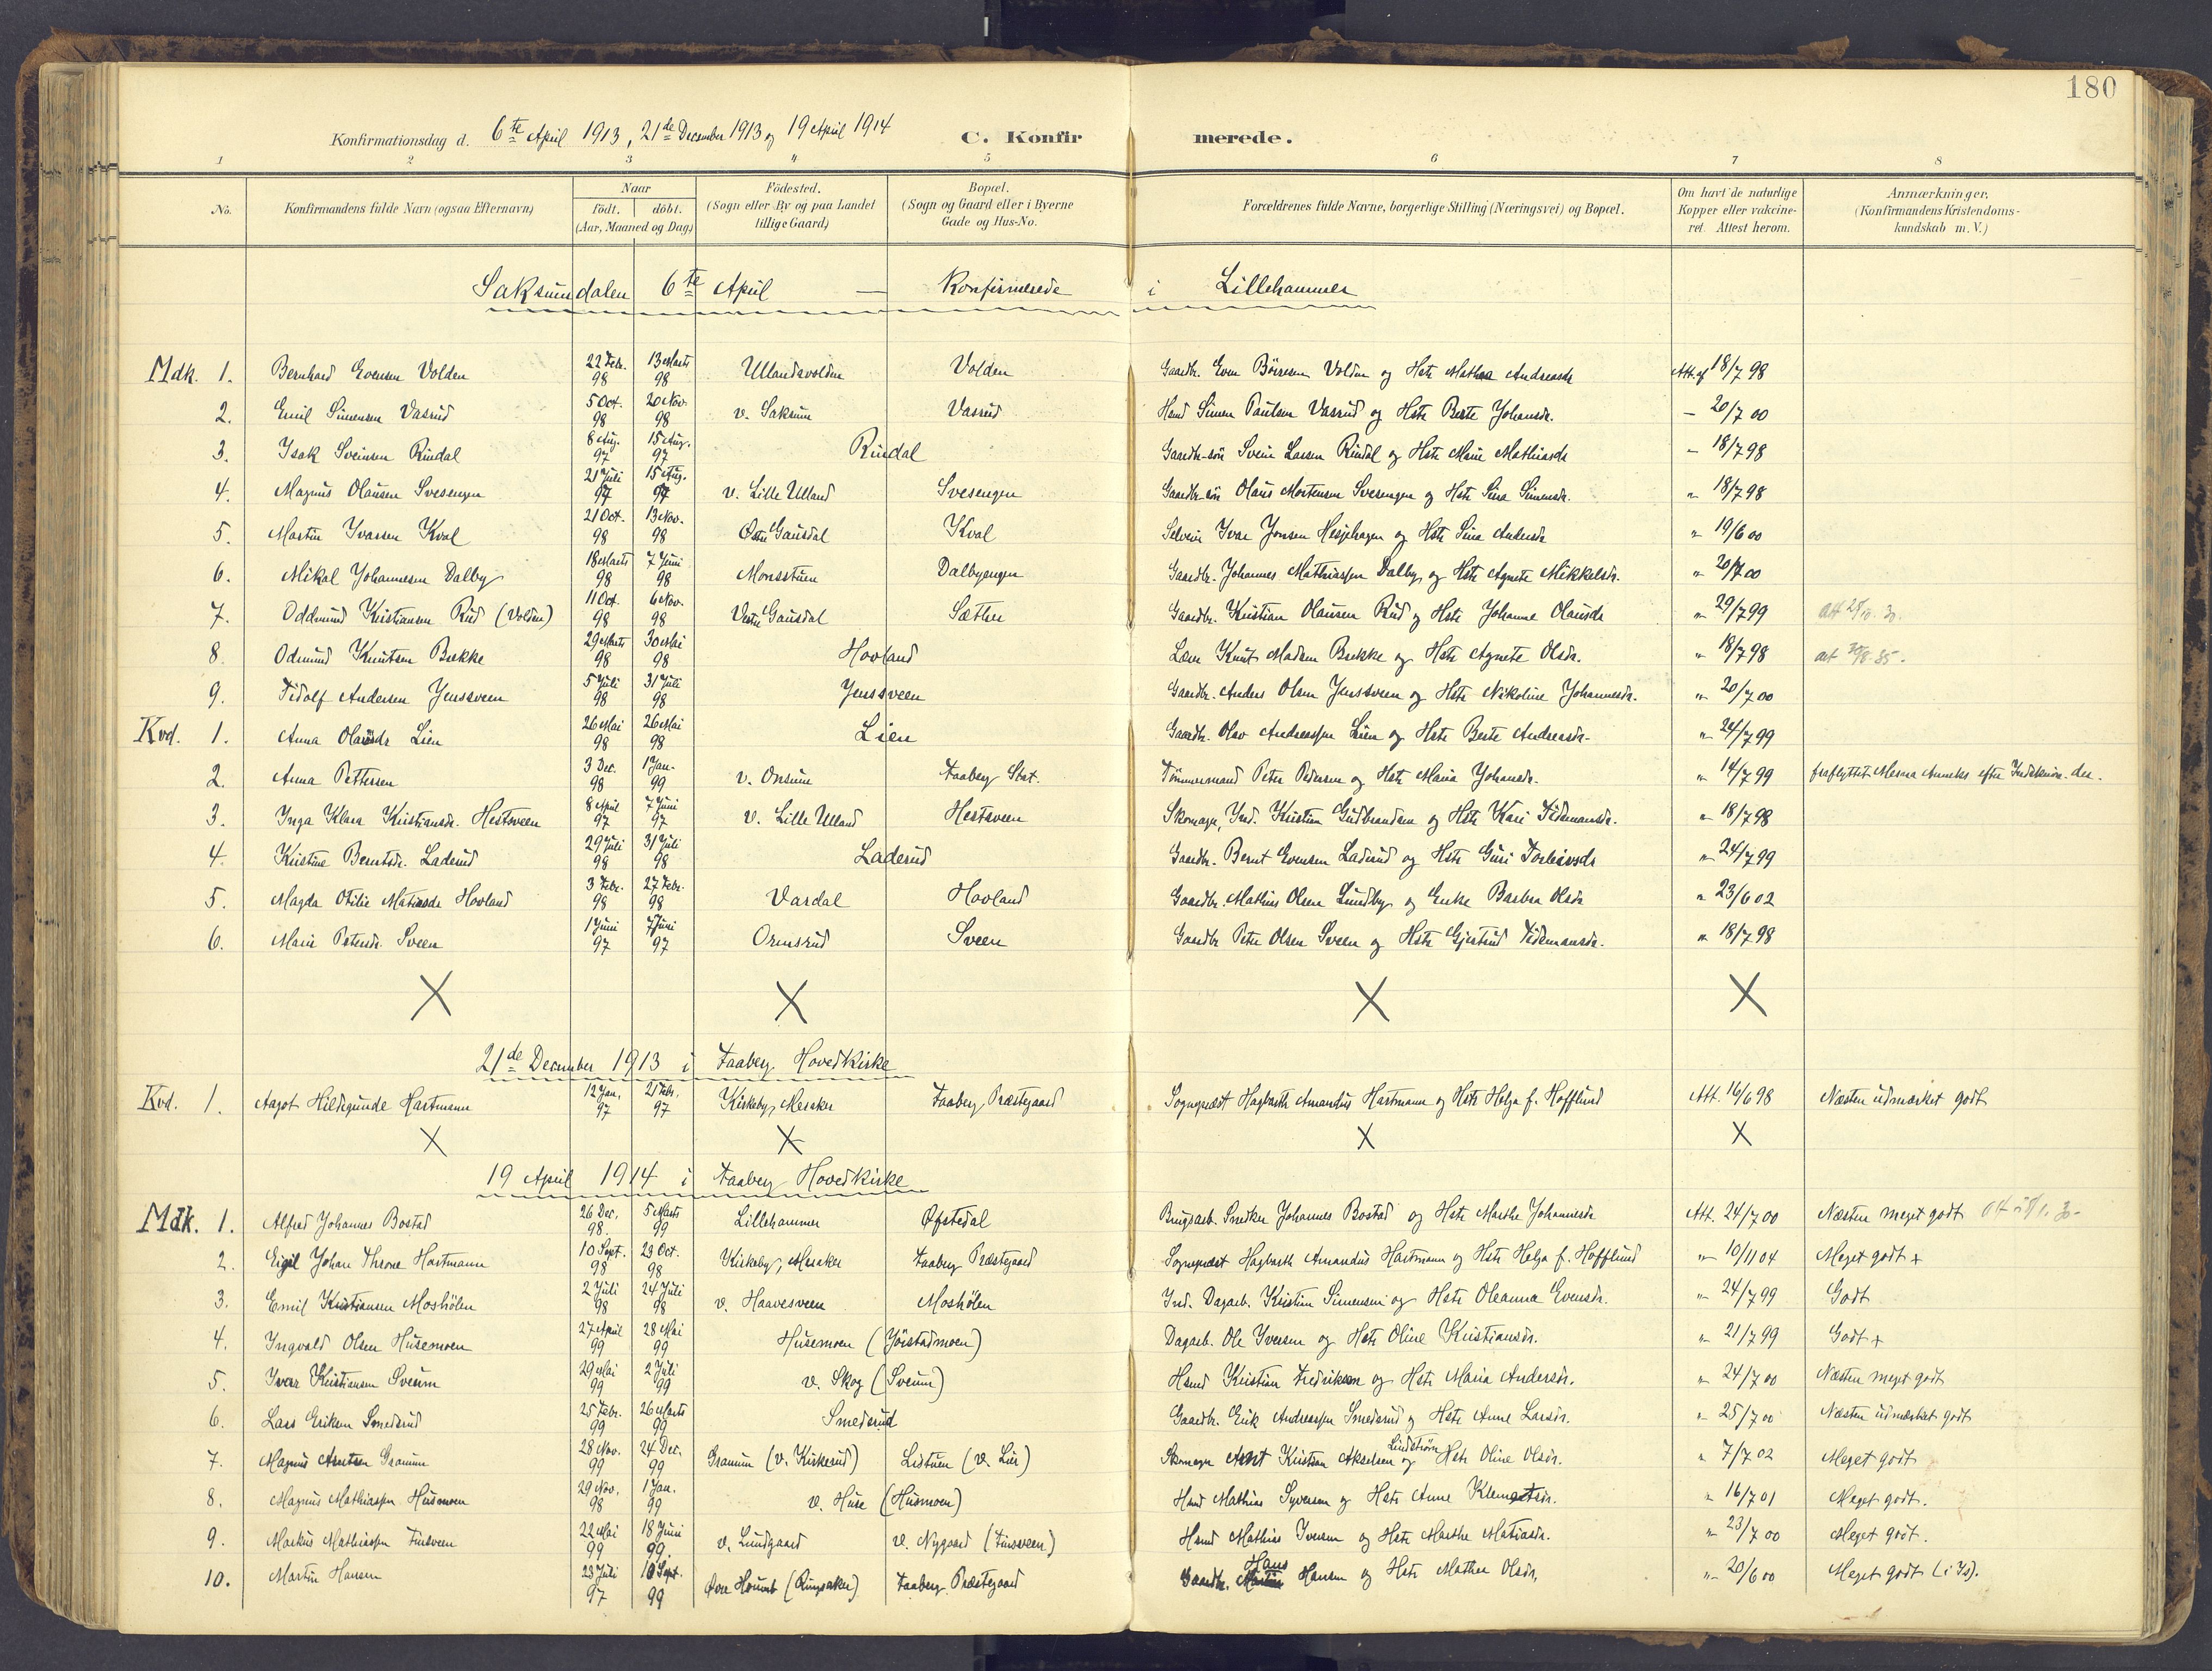 180
Konfirmationsdag d. 6te April 1913, 21de December 1913 og 19 April 1914 C. Konfirmerede.
1 2 3 4 5 6 7 8
No. Konfirmandens fulde Navn (ogsaa Efternavn) Naar født. døbt. (Aar, Maaned og Dag) Födested. (Sogn eller By og paa Landet tillige Gaard) Bopæl. (Sogn og Gaard eller i Byerne Gade og Hus-No. Forældrenes fulde Navne, borgerlige Stilling (Næringsvei) og Bopæl. Om havt de naturlige Kopper eller vakcineret. Attest herom. Anmærkninger. (Konfirmandens Kristendomskundskab m. V.)
Saksumdalen 6te April — Konfirmerede i Lillehammer
Mdk. 1. Bernhard Evensen Volden 22 Febr. 98 13 Marts 98 Ullandsvolden Volden Gaardbr. Even Börresen Volden og Hstr Mathea Andreasdr Att. af 18/7 98
2. Emil Simensen Vasrud 5 Oct. 98 20 Nov. 98 v. Saksum Vasrud Hsmd Simen Paulsen Vasrud og Hstr Berte Johansdr. – 20/7 00
3. Isak Sveinsen Rindal 8 Aug. 97 15 Aug. 97 Rindal Gaardbr-sön Svein Larsen Rindal og Hstr Marie Mathiasdr " 18/7 98
4. Magnus Olausen Svesengen 21 Juli 97 15 Aug. 97 v. Lille Ulland Svesengen Gaardbr-sön Olaus Mortensen Svesengen og Hstr Sina Simensdr. " 18/7 98
5. Martin Ivarsen Kval 21 Oct. 98 13 Nov. 98 Östre Gausdal Kval Selveier Ivar Jonsen Hesjehagen og Hstr Sina Andersdr " 19/6 00
6. Mikal Johannesen Dalby 18 Marts 98 7 Juni 98 Monsstuen Dalbyengen Gaardbr. Johannes Mathiassen Dalby og Hstr Agnete Mikkelsdr. " 20/7 00
7. Oddmund Kristiansen Rud (Volden) 11 Oct. 98 6 Nov. 98 Vestre Gausdal Sæther Gaardbr. Kristian Olausen Rud og Hstr Johanne Olausdr " 29/7 99
8. Odmund Knutsen Brekke 29 Marts 98 30 Mai 98 Hovland Lærer Knut Madsen Brekke og Hstr Agnete Olsdr. " 18/7 98
9. Tidolf Andersen Jenssveen 5 Juli 98 31 Juli 98 Jenssveen Gaardbr. Anders Olsen Jenssveen og Hstr Nikoline Johannesdr. " 20/7 00
Kvd. 1. Anna Olavsdr Lien 26 Mai 98 26 Mai 98 Lien Gaardbr. Olav Andreassen Lien og Hstr Berte Andreasdr. " 24/7 99
2. Anna Pettersen 3 Dec. 98 1 Jan. 99 v. Onsum Faaberg Stat. Tömmermand Peter Pedersen og Hstr Maria Johansdr. " 14/7 99 fraflyttet Mesna Anneks efter
3. Inga Klara Kristiansdr. Hestsveen 8 April 97 7 Juni 97 v. Lille Ulland Hestsveen Skomager, Ind. Kristian Gudbrandsen og Hstr Kari Tidemansdr. " 18/7 98
4. Kristine Berntsdr. Laderud 29 Juli 98 31 Juli 98 Laderud Gaardbr. Bernt Evensen Laderud og Hstr Guri Torleivsdr " 24/7 99
5. Magda Otilie Matiasdr Hovland 3 Febr. 98 27 Febr. 98 Vardal Hovland Gaardbr. Mathias Olsen Lundby og Enke Barbra Olsdr " 23/6 02
6. Marie Petersdr. Sveen 1 Juni 97 7 Juni 97 Ormsrud Sveen Gaardbr Peter Olsen Sveen og Hstr Gjertrud Tidemansdr. " 18/7 98
X X X X
21de December 1913 i Faaberg Hovedkirke
Kvd. 1. Aagot Hildegunde Hartmann 12 Jan. 97 21 Febr. 97 Kirkeby, Meraker Faaberg Præstegaard Sogneprest Hagbarth Amandus Hartmann og Hstr Helga f. Hofflund Att. 16/6 98 Næsten udmærket godt
X X X X
19 April 1914 i Faaberg Hovedkirke
Mdk. 1. Alfred Johannes Bostad 26 Dec. 98 5 Marts 99 Lillehammer Øfstedal Brugsarb. Snedker Johannes Bostad og Hstr Marthe Johannesdr Att. 24/7 00 Næsten meget godt
2. Eigil Johan Throne Hartmann 10 Sept. 98 23 Oct. 98 Kirkeby, Meraker Faaberg Præstegaard Sogneprest Hagbarth Amandus Hartmann og Hstr Helga f. Hofflund " 10/11 04 Meget godt +
3. Emil Kristiansen Moshölen 2 Juli 98 24 Juli 98 v. Haavesveen Moshölen Ind. Dagarb. Kristian Simensen og Hstr Oleanna Evensdr. " 24/7 99 Godt
4. Ingvald Olsen Husemoen 27 April 99 28 Mai 99 Husemoen (Jöistadmoen) Dagarb. Ole Iversen og Hstr Oline Kristiansdr. " 21/7 99 Godt +
5. Ivar Kristiansen Sveum 29 Mai 99 2 Juli 99 v. Skog (Sveum) Hsmd Kristian Fredriksen og Hstr Maria Andersdr. " 24/7 00 Næsten meget godt
6. Lars Eriksen Smedsrud 25 Febr. 99 26 Marts 99 Smedsrud Gaardbr. Erik Andreassen Smedsrud og Hstr Anne Larsdr. " 25/7 00 Næsten udmærket godt
7. Magnus Arntsen Granum 28 Nov. 99 24 Dec. 99 Granum (v. Kirkerud) Listuen (v. Lier) Skomager Arnt Kristian Akselsen Lindström og Hstr Oline Olsdr. " 7/7 02 Meget godt
8. Magnus Mathiassen Husmoen 29 Nov. 98 1 Jan. 99 v. Huse (Husmoen) Hsmd Mathias Syversen og Hstr Anne Klemetsdr. " 16/7 01 Meget godt.
9. Markus Mathiassen Fursveen 22 Mai 99 18 Juni 99. v. Lundgaard v. Nygaard (Fursveen) Hsmd Mathias Iversen og Hstr Marthe Matiasdr. " 23/7 00 Meget godt.
10. Martin Hansen 23 Juli 97 10 Sept. 99 (Ringsaker) Faaberg Præstegaard Gaardbr. Hans Hansen og Hstr Mathea Olsdr. " 20/6 00 Meget godt (i Is).